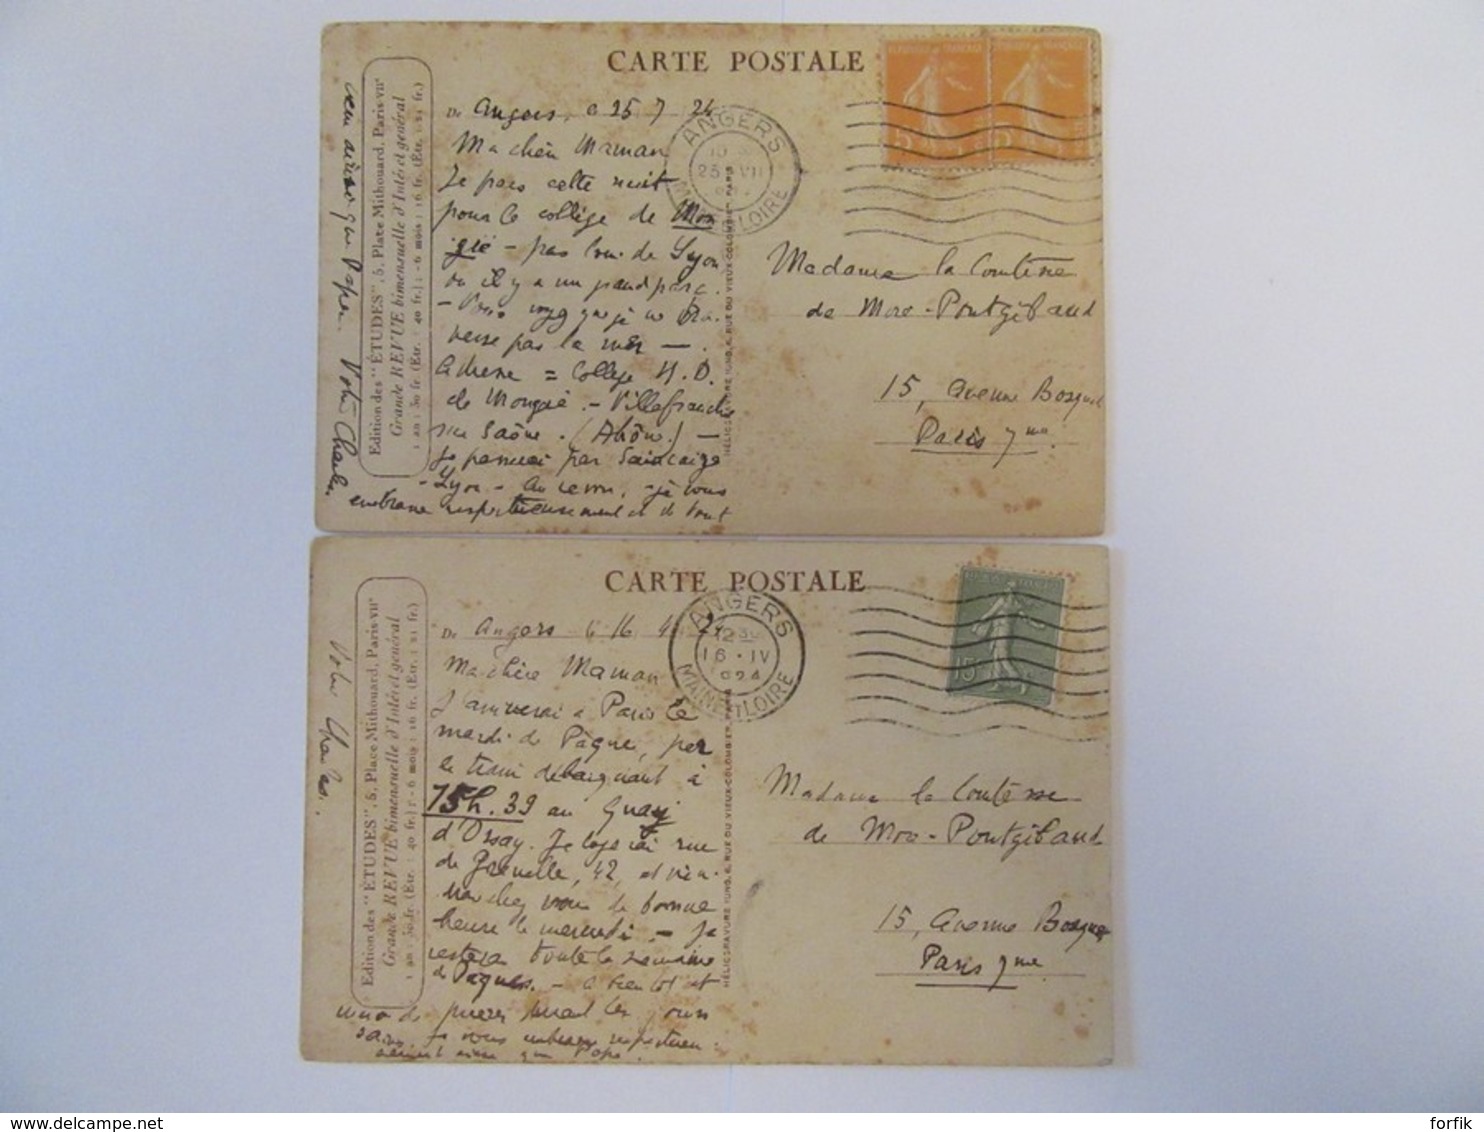 CARTE POSTALE
Edition des "ÉTUDES", 5, Place Mithouard, Paris-VIIe
Grande REVUE bimensuelle d'Intérêt général
1 an : 30 fr. (Étr. : 40 fr.) ; - 6 mois : 16 fr. (Étr. : 21 fr.)
De Angers, le 25 7 24
Ma chère Maman
Je pars cette nuit
pour le collège de Mon
gré - pas loin de Lyon
où il y a un grand parc.
- Vous voyez que je ne tra
verse pas la mer -.
Adresse = Collège N.D.
de Mongré. - Villefranche
sur Saône. (Rhône) -
Je passerai par Saincaize
- Lyon - Au revoir, - je vous
embrasse respectueusement et de tout
cœur ainsi que Papa. Votre Charles
ANGERS
25 VII
MAINE ET LOIRE
HÉLIOGRAVURE JUNG, 6, RUE DU VIEUX-COLOMBIER, PARIS
Madame la Comtesse
de More-Pontgibaud
15, Avenue Bosquet
Paris 7me
CARTE POSTALE
Edition des "ÉTUDES", 5, Place Mithouard, Paris-VIIe
Grande REVUE bimensuelle d'Intérêt général
1 an : 30 fr. (Étr. : 40 fr.) ; - 6 mois : 16 fr. (Étr. : 21 fr.)
De Angers le 16 4 24
Ma chère Maman
J'arriverai à Paris le
mardi de Pâque, par
le train débarquant à
15h.39 au Quai
d'Orsay. Je logerai rue
de Grenelle, 42, et vien
drai chez vous de bonne
heure le mercredi. - Je
resterai toute la semaine
de Pâques. - à bientôt et
union de prières pendant les jours
saints. Je vous embrasse respectueu
sement ainsi que Papa.
Votre Charles.
ANGERS
12 30
16 • IV
924
MAINE ET LOIRE
15
HÉLIOGRAVURE JUNG, 6, RUE DU VIEUX-COLOMBIER, PARIS
Madame la Comtesse
de More-Pontgibaud
15, Avenue Bosquet
Paris 7me
forfik